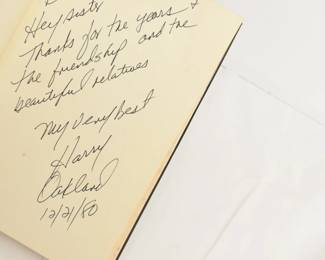 Hey Sister
Thanks for the years &
the friendship and the
beautiful relatives
My very best
Harry
Oakland
12/21/80